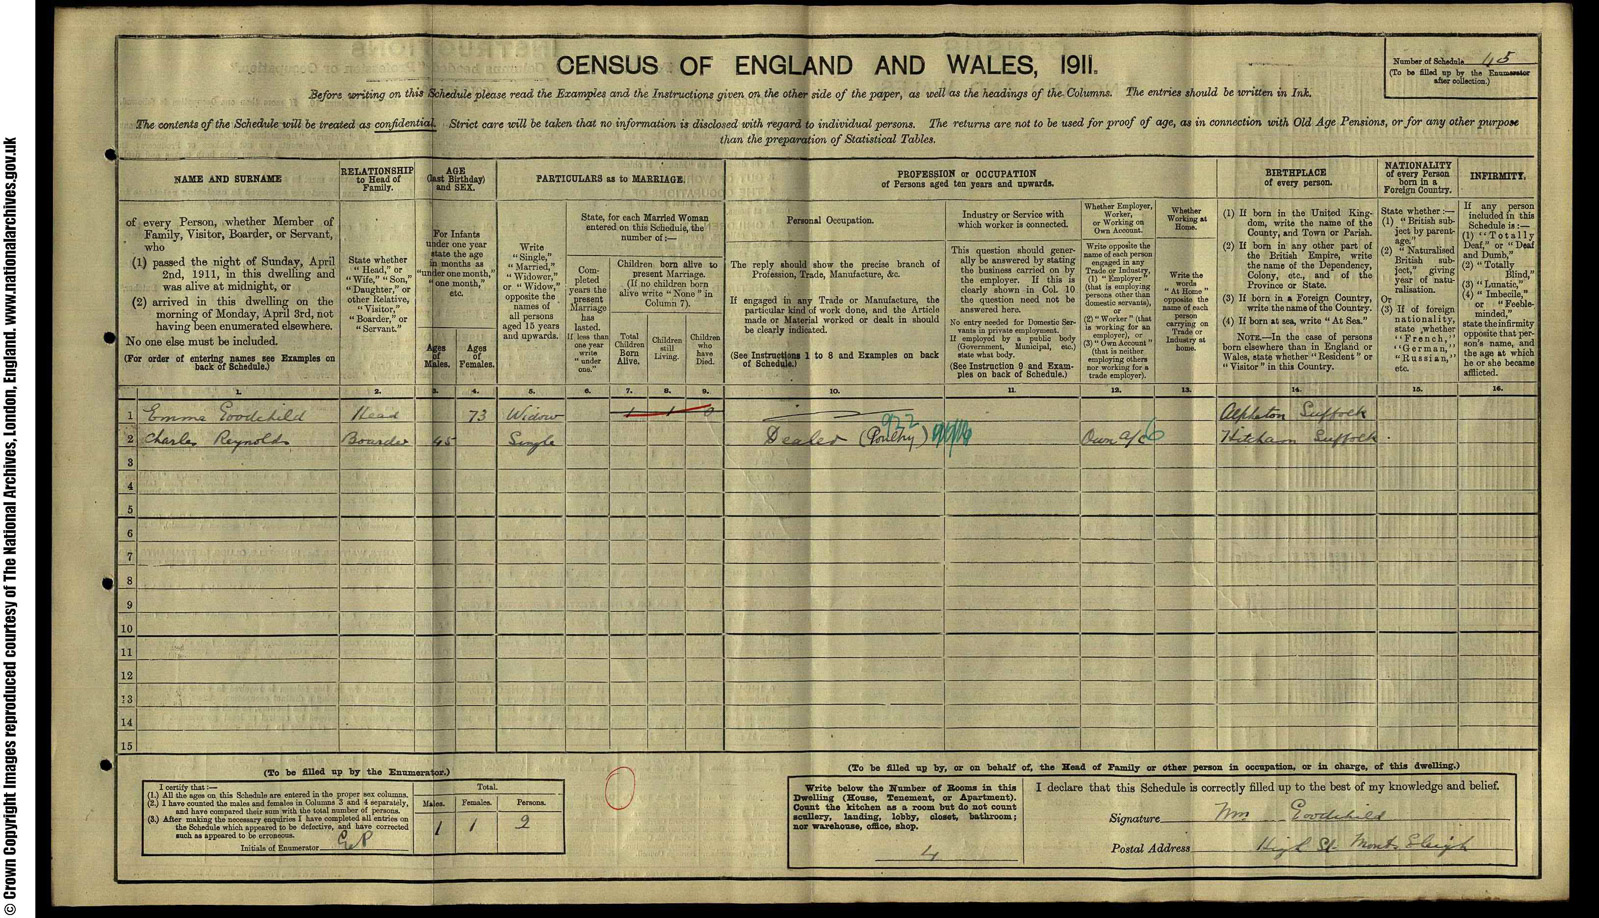 CENSUS OF ENGLAND AND WALES, 1911.
Number of Schedule 45
(To be filled up by the Enumerator after collection.)
Before writing on this Schedule please read the Examples and the Instructions given on the other side of the paper, as well as the headings of the Columns. The entries should be written in Ink.
The contents of the Schedule will be treated as confidential. Strict care will be taken that no information is disclosed with regard to individual persons. The returns are not to be used for proof of age, as in connection with Old Age Pensions, or for any other purpose
than the preparation of Statistical Tables.
NAME AND SURNAME
of every Person, whether Member of
Family, Visitor, Boarder, or Servant,
who
(1) passed the night of Sunday, April
2nd, 1911, in this dwelling and
was alive at midnight, or
(2) arrived in this dwelling on the
morning of Monday, April 3rd, not
having been enumerated elsewhere.
No one else must be included.
(For order of entering names see Examples on
back of Schedule.)
RELATIONSHIP
to Head of
Family.
State whether
"Head," or
"Wife," "Son,"
"Daughter," or
other Relative,
"Visitor,"
"Boarder," or
"Servant."
AGE
(last Birthday)
and SEX.
For Infants
under one year
state the age
in months as
"under one month,"
"one month,"
etc.
Ages
of
Males.
Ages
of
Females.
PARTICULARS as to MARRIAGE.
Write
"Single,"
"Married,"
"Widower,"
or "Widow,"
opposite the
names of
all persons
aged 15 years
and upwards.
State, for each Married Woman
entered on this Schedule, the
number of:—
Com-
pleted
years the
present
Marriage
has
lasted.
If less than
one year
write
"under
one."
Children born alive to
present Marriage.
(If no children born
alive write "None" in
Column 7).
Total
Children
Born
Alive.
Children
still
Living.
Children
who
have
Died.
PROFESSION or OCCUPATION
of Persons aged ten years and upwards.
Personal Occupation.
The reply should show the precise branch of
Profession, Trade, Manufacture, &c.
If engaged in any Trade or Manufacture, the
particular kind of work done, and the Article
made or Material worked or dealt in should
be clearly indicated.
(See Instructions 1 to 8 and Examples on back
of Schedule.)
Industry or Service with
which worker is connected.
This question should gener-
ally be answered by stating
the business carried on by
the employer. If this is
clearly shown in Col. 10
the question need not be
answered here.
No entry needed for Domestic Ser-
vants in private employment.
If employed by a public body
(Government, Municipal, etc.)
state what body.
(See Instruction 9 and Exam-
ples on back of Schedule.)
Whether Employer,
Worker,
or Working on
Own Account.
Write opposite the
name of each person
engaged in any
Trade or Industry,
(1) "Employer"
(that is employing
persons other than
domestic servants),
or
(2) "Worker" (that
is working for an
employer), or
(3) "Own Account"
(that is neither
employing others
nor working for a
trade employer).
Whether
Working at
Home.
Write the
words
"At Home"
opposite the
name of each
person
carrying on
Trade or
Industry at
home.
BIRTHPLACE
of every person.
(1) If born in the United King-
dom, write the name of the
County, and Town or Parish.
(2) If born in any other part of
the British Empire, write
the name of the Dependency,
Colony, etc., and of the
Province or State.
(3) If born in a Foreign Country,
write the name of the Country.
(4) If born at sea, write "At Sea."
NOTE.—In the case of persons
born elsewhere than in England or
Wales, state whether "Resident" or
"Visitor" in this Country.
NATIONALITY
of every Person
born in a
Foreign Country.
State whether:—
(1) "British sub-
ject by parent-
age,"
(2) "Naturalised
British sub-
ject," giving
year of natu-
ralisation.
Or
(3) If of foreign
nationality,
state whether
"French,"
"German,"
"Russian,"
etc.
INFIRMITY.
If any person
included in this
Schedule is:—
(1) "Totally
Deaf," or "Deaf
and Dumb,"
(2) "Totally
Blind,"
(3) "Lunatic,"
(4) "Imbecile,"
or "Feeble-
minded,"
state the infirmity
opposite that per-
son's name, and
the age at which
he or she became
afflicted.
1. 2. 3. 4. 5. 6. 7. 8. 9. 10. 11. 12. 13. 14. 15. 16.
1 Emma Goodchild Head 73 Widow 1 1 0 Alpheton Suffolk
2 Charles Reynolds Boarder 45 Single Dealer (Poultry) 922 Own a/c 6 Hitcham Suffolk
3
4
5
6
7
8
9
10
11
12
13
14
15
(To be filled up by the Enumerator.)
I certify that:—
(1.) All the ages on this Schedule are entered in the proper sex columns.
(2.) I have counted the males and females in Columns 3 and 4 separately,
and have compared their sum with the total number of persons.
(3.) After making the necessary enquiries I have completed all entries on
the Schedule which appeared to be defective, and have corrected
such as appeared to be erroneous.
Initials of Enumerator
Total.
Males. Females. Persons.
1 1 2
(To be filled up by, or on behalf of, the Head of Family or other person in occupation, or in charge, of this dwelling.)
Write below the Number of Rooms in this
Dwelling (House, Tenement, or Apartment).
Count the kitchen as a room but do not count
scullery, landing, lobby, closet, bathroom;
nor warehouse, office, shop.
4
I declare that this Schedule is correctly filled up to the best of my knowledge and belief.
Signature Wm Goodchild
Postal Address High St. Monks Eleigh
© Crown Copyright Images reproduced courtesy of The National Archives, London, England. www.nationalarchives.gov.uk